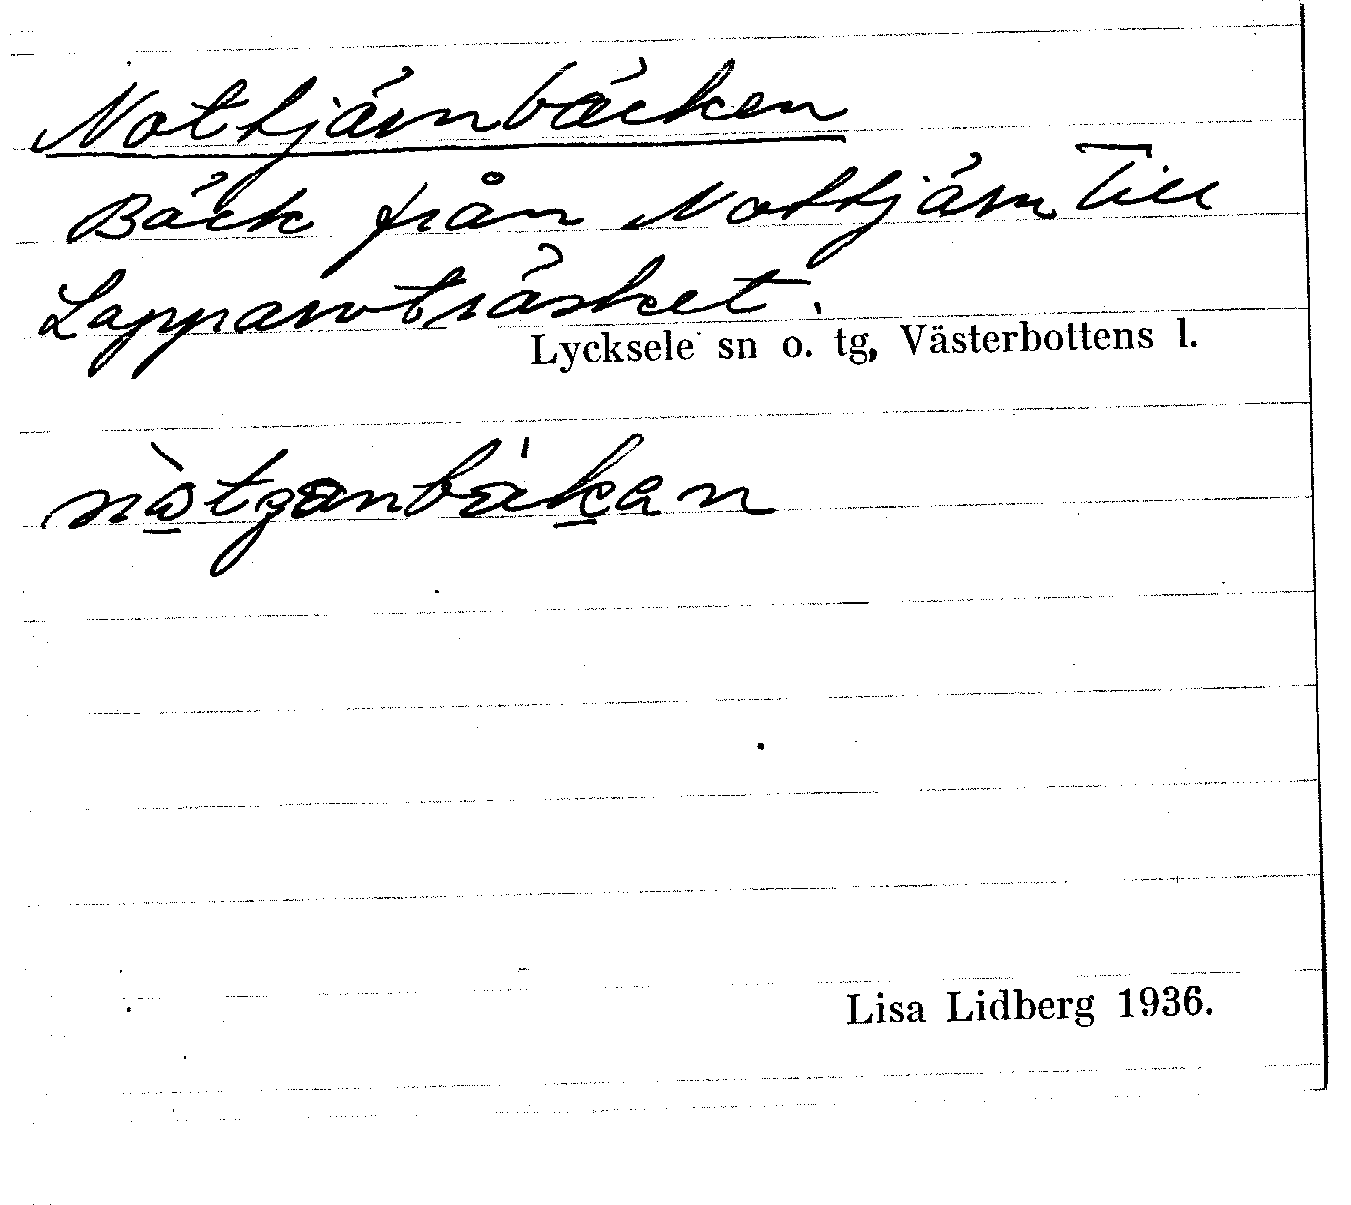 Nottjärnbäcken
Bäck från Nottjärn till
Lapparvoträsket.
Lycksele sn o. tg, Västerbottens l.
Lisa Lidberg 1936.